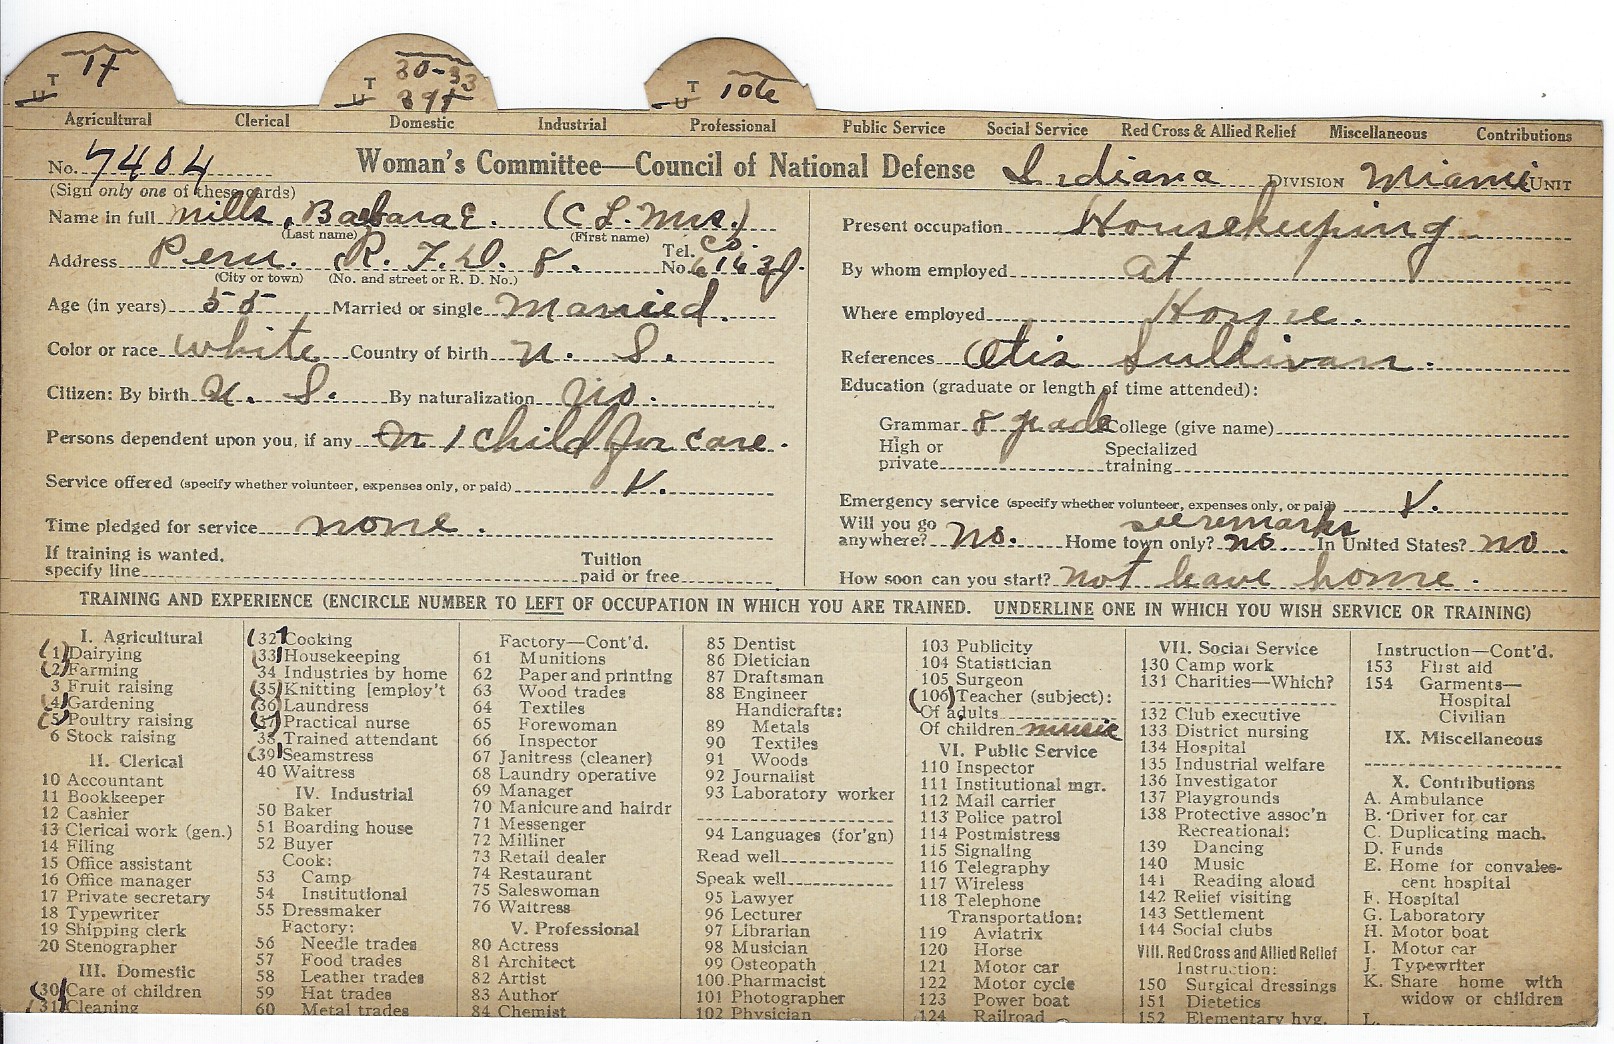 1t 30-33 106
T T 39t T
U U U
Agricultural Clerical Domestic Industrial Professional Public Service Social Service Red Cross & Allied Relief Miscellaneous Contributions
No. 7404 Woman's Committee—Council of National Defense Indiana DIVISION Miami UNIT
(Sign only one of these cards)
Name in full Mills, Barbara E. (C L. Mrs.)
(Last name) (First name)
Address Peru. R. F. D. 8. Tel. No. Co.
(City or town) (No. and street or R. D. No.)
Age (in years) 55 Married or single Married.
Color or race White Country of birth U. S.
Citizen: By birth U. S. By naturalization no.
Persons dependent upon you, if any 1 child for care.
Service offered (specify whether volunteer, expenses only, or paid) V.
Time pledged for service none.
If training is wanted, specify line Tuition paid or free
Present occupation Housekeeping
By whom employed at
Where employed Home.
References Otis Sullivan.
Education (graduate or length of time attended):
Grammar 8 grade College (give name)
High or private Specialized training
Emergency service (specify whether volunteer, expenses only, or paid) V.
see remarks
Will you go anywhere? No. Home town only? no In United States? no
How soon can you start? not leave home.
TRAINING AND EXPERIENCE (ENCIRCLE NUMBER TO LEFT OF OCCUPATION IN WHICH YOU ARE TRAINED. UNDERLINE ONE IN WHICH YOU WISH SERVICE OR TRAINING)
I. Agricultural
(1) Dairying
(2) Farming
3 Fruit raising
(4) Gardening
(5) Poultry raising
6 Stock raising
II. Clerical
10 Accountant
11 Bookkeeper
12 Cashier
13 Clerical work (gen.)
14 Filing
15 Office assistant
16 Office manager
17 Private secretary
18 Typewriter
19 Shipping clerk
20 Stenographer
III. Domestic
(30) Care of children
(31) Cleaning
(32) Cooking
(33) Housekeeping
34 Industries by home
(35) Knitting [employ't
(36) Laundress
(37) Practical nurse
38 Trained attendant
(39) Seamstress
40 Waitress
IV. Industrial
50 Baker
51 Boarding house
52 Buyer
Cook:
53 Camp
54 Institutional
55 Dressmaker
Factory:
56 Needle trades
57 Food trades
58 Leather trades
59 Hat trades
60 Metal trades
Factory—Cont'd.
61 Munitions
62 Paper and printing
63 Wood trades
64 Textiles
65 Forewoman
66 Inspector
67 Janitress (cleaner)
68 Laundry operative
69 Manager
70 Manicure and hairdr
71 Messenger
72 Milliner
73 Retail dealer
74 Restaurant
75 Saleswoman
76 Waitress
V. Professional
80 Actress
81 Architect
82 Artist
83 Author
84 Chemist
85 Dentist
86 Dietician
87 Draftsman
88 Engineer
Handicrafts:
89 Metals
90 Textiles
91 Woods
92 Journalist
93 Laboratory worker
94 Languages (for'gn)
Read well
Speak well
95 Lawyer
96 Lecturer
97 Librarian
98 Musician
99 Osteopath
100 Pharmacist
101 Photographer
102 Physician
103 Publicity
104 Statistician
105 Surgeon
(106) Teacher (subject):
Of adults
Of children music
VI. Public Service
110 Inspector
111 Institutional mgr.
112 Mail carrier
113 Police patrol
114 Postmistress
115 Signaling
116 Telegraphy
117 Wireless
118 Telephone
Transportation:
119 Aviatrix
120 Horse
121 Motor car
122 Motor cycle
123 Power boat
124 Railroad
VII. Social Service
130 Camp work
131 Charities—Which?
132 Club executive
133 District nursing
134 Hospital
135 Industrial welfare
136 Investigator
137 Playgrounds
138 Protective assoc'n
Recreational:
139 Dancing
140 Music
141 Reading aloud
142 Relief visiting
143 Settlement
144 Social clubs
VIII. Red Cross and Allied Relief
Instruction:
150 Surgical dressings
151 Dietetics
152 Elementary hyg.
Instruction—Cont'd.
153 First aid
154 Garments—
Hospital
Civilian
IX. Miscellaneous
X. Contributions
A. Ambulance
B. Driver for car
C. Duplicating mach.
D. Funds
E. Home for convales-
cent hospital
F. Hospital
G. Laboratory
H. Motor boat
I. Motor car
J. Typewriter
K. Share home with
widow or children
L.